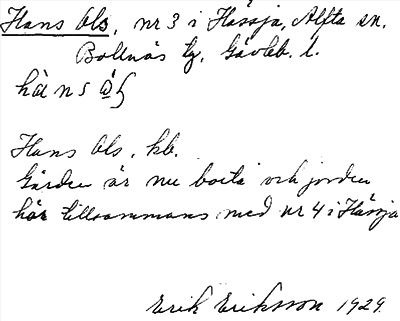 Hans Ols, nr 3 i Hässja, Alfta sn.
Bollnäs tg, Gävleb. l.
Hans Ols, kb.
Gården är nu borta och jorden
hör tillsammans med nr 4 i Hässja
Erik Eriksson 1929.